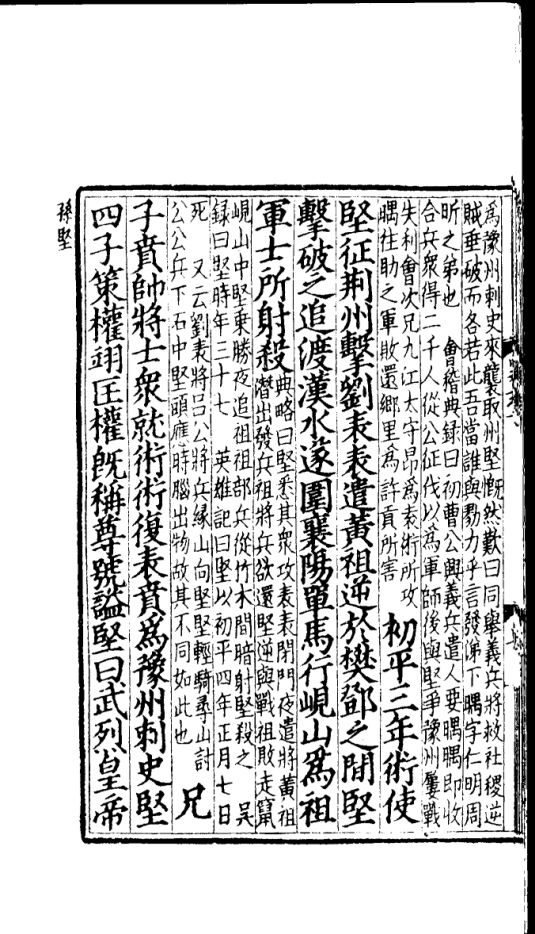 爲豫州刺史來襲取州堅慨然歎曰同舉義兵將救社稷逆
賊垂破而各若此吾當誰與勠力乎言發涕下喁字仁明周
昕之弟也 會稽典録曰初曹公興義兵遣人要喁喁即收
合兵衆得二千人從公征伐以爲軍師後與堅爭豫州屢戰
失利會次兄九江太守昂爲袁術所攻
喁往助之軍敗還鄉里爲許貢所害
初平三年術使
堅征荆州擊劉表表遣黃祖逆於樊鄧之間堅
擊破之追渡漢水遂圍襄陽單馬行峴山爲祖
軍士所射殺
典略曰堅悉其衆攻表表閉門夜遣將黃祖
潛出發兵祖將兵欲還堅逆與戰祖敗走竄
峴山中堅乗勝夜追祖祖部兵從竹木間暗射堅殺之 吳
録曰堅時年三十七 英雄記曰堅以初平四年正月七日
死 又云劉表將呂公將兵緣山向堅堅輕騎尋山討
公公兵下石中堅頭應時腦出物故其不同如此也
兄
子賁帥將士衆就術術復表賁爲豫州刺史堅
四子策權翊匡權既稱尊號謚堅曰武烈皇帝
孫堅